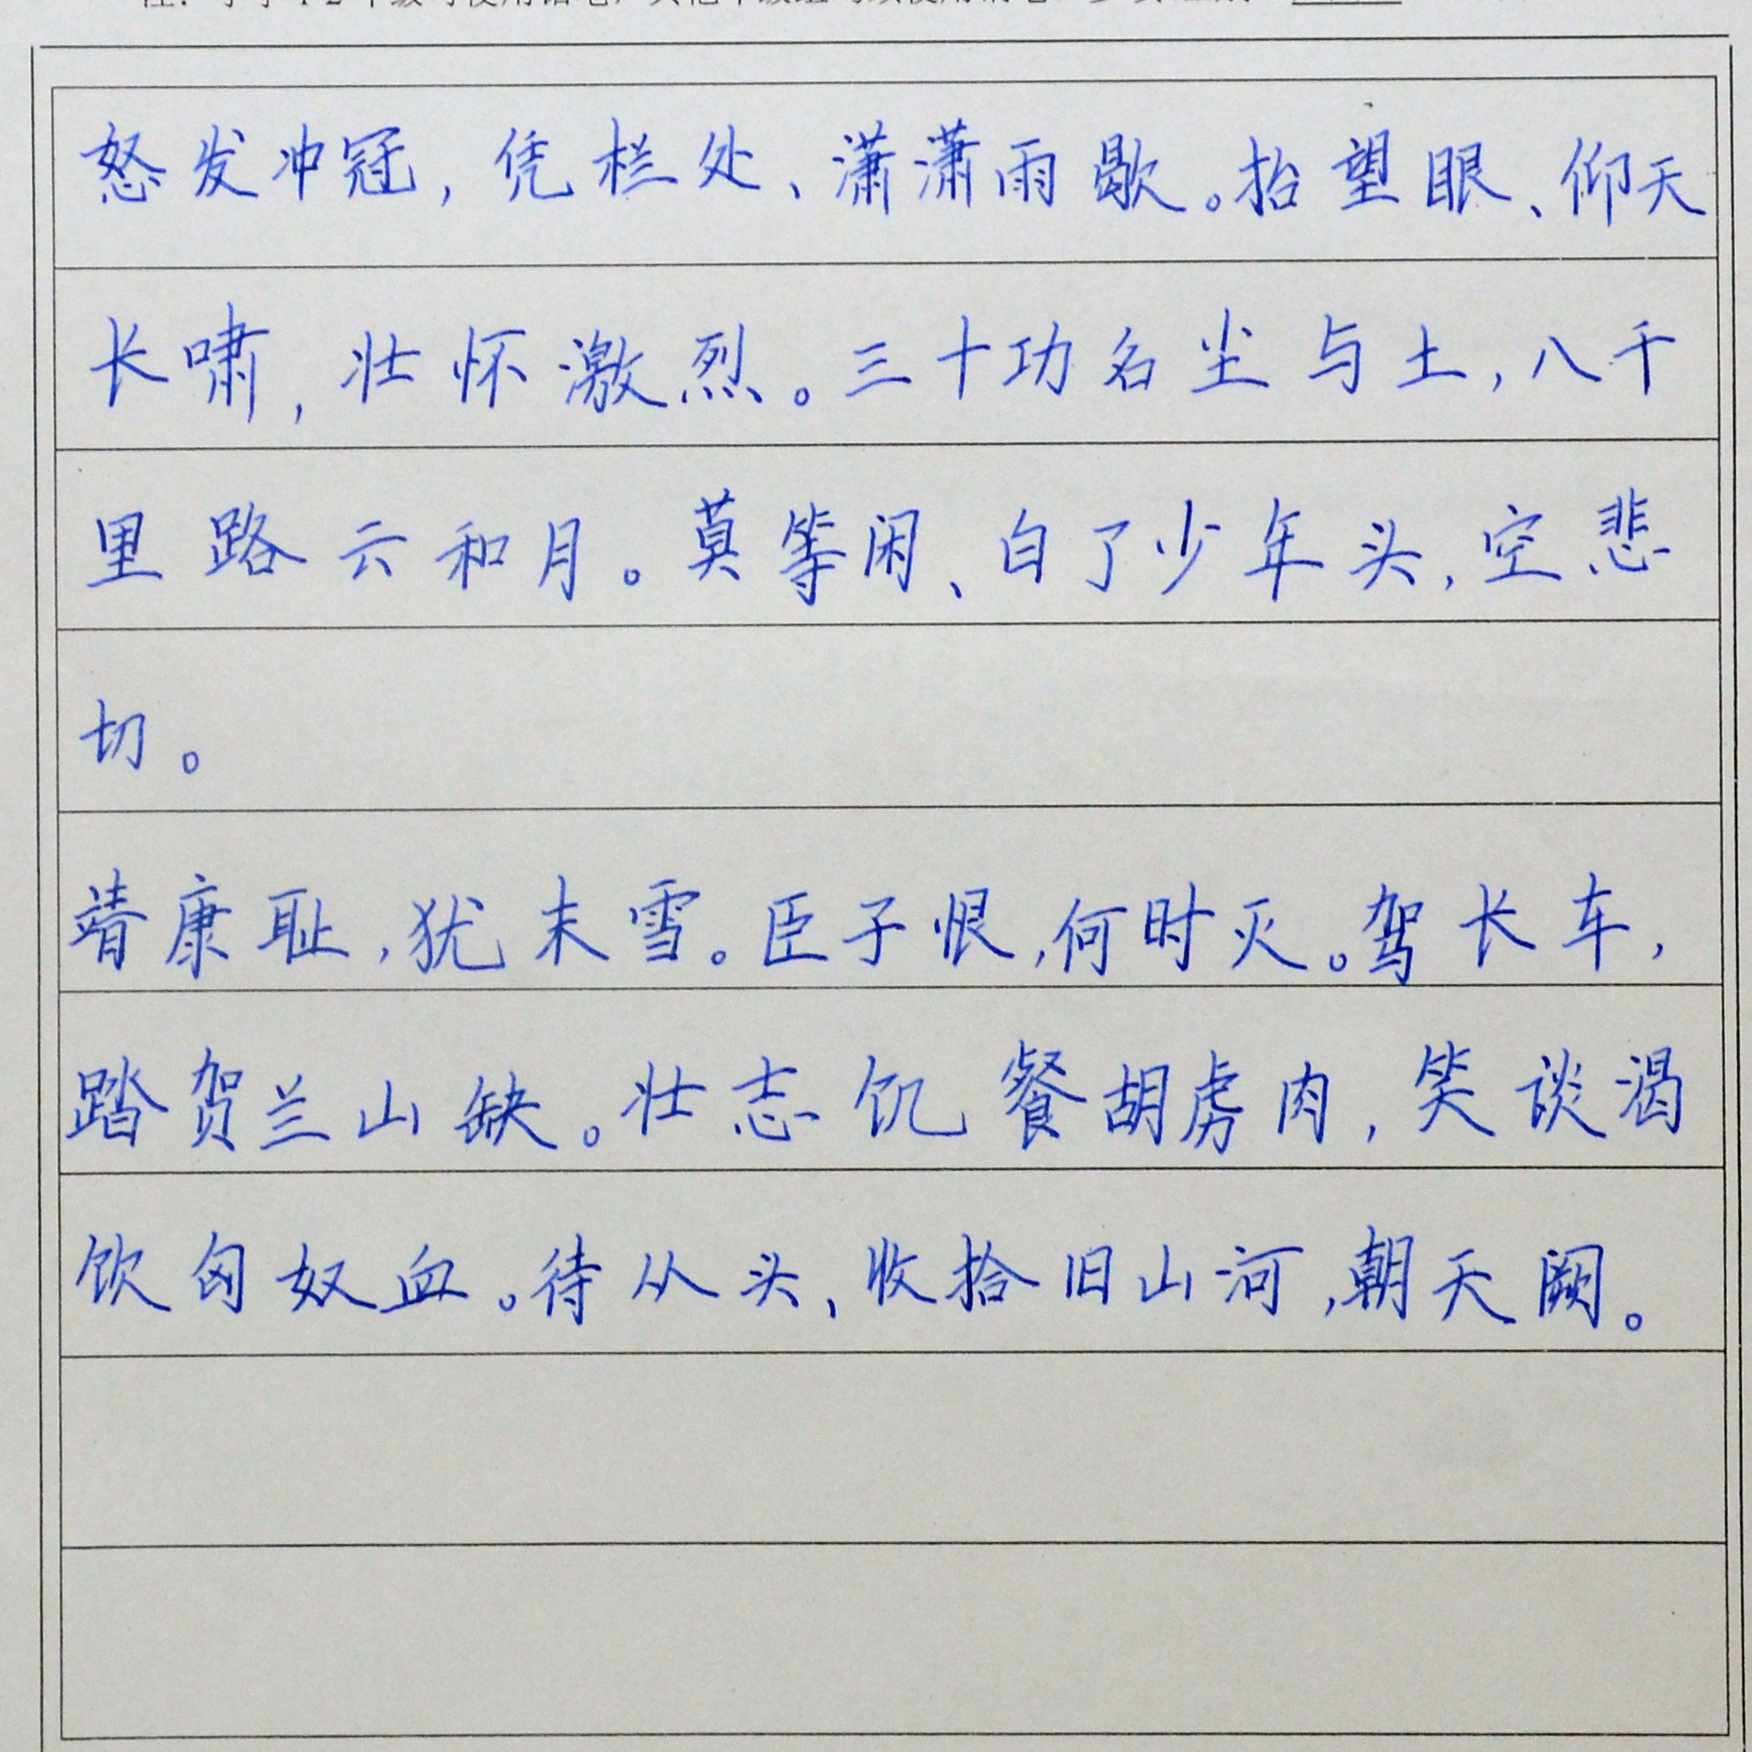 怒发冲冠，凭栏处、潇潇雨歇。抬望眼、仰天
长啸，壮怀激烈。三十功名尘与土，八千
里路云和月。莫等闲、白了少年头，空悲
切。
靖康耻，犹未雪。臣子恨，何时灭。驾长车，
踏贺兰山缺。壮志饥餐胡虏肉，笑谈渴
饮匈奴血。待从头、收拾旧山河，朝天阙。